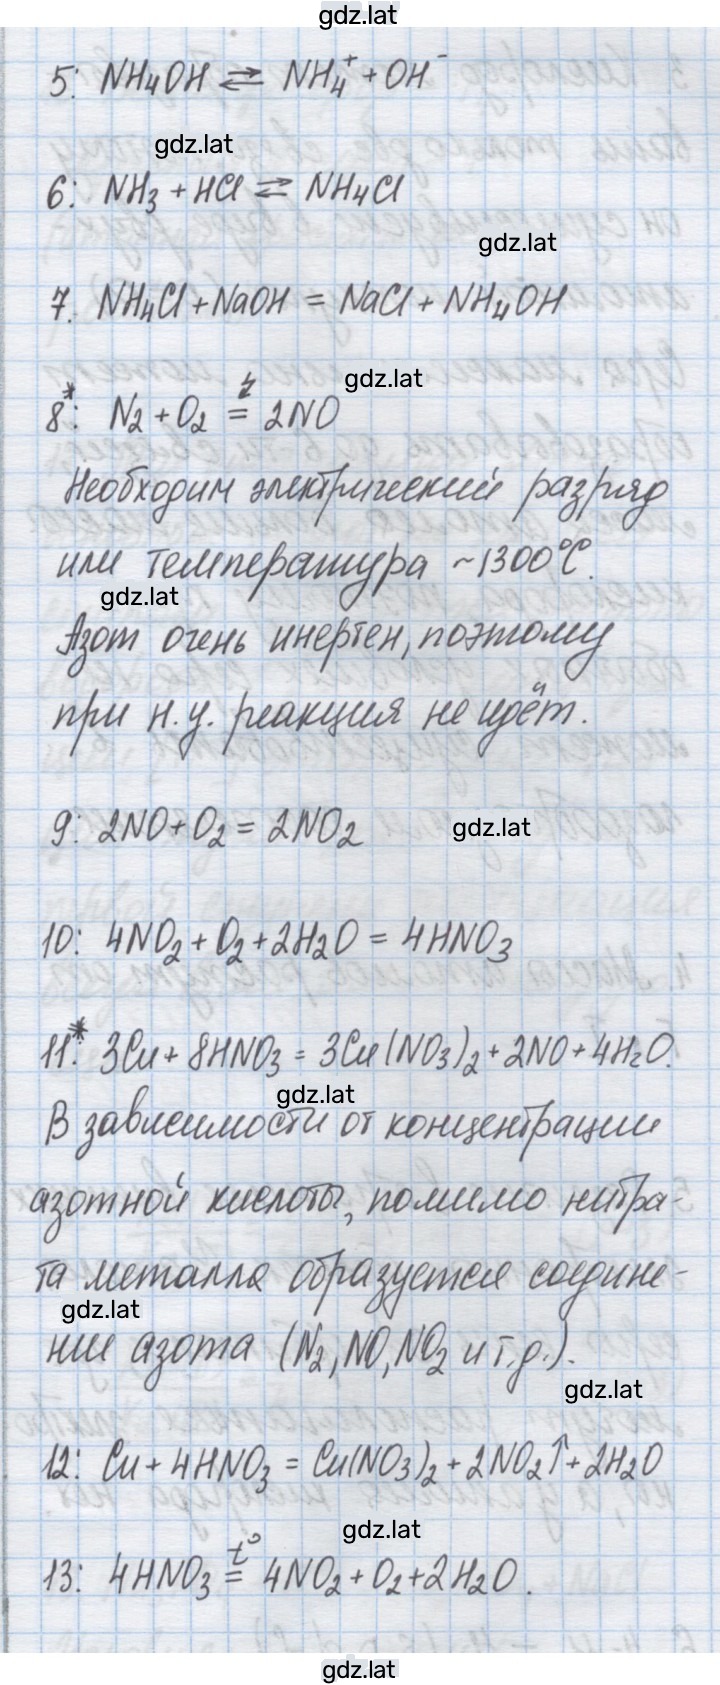 gdz.lat
5: NH₄OH ⇄ NH₄⁺ + OH⁻
gdz.lat
6: NH₃ + HCl ⇄ NH₄Cl
gdz.lat
7. NH₄Cl + NaOH = NaCl + NH₄OH
gdz.lat
8*: N₂ + O₂ =^↯ 2NO
Необходим электрический разряд
или температура ~1300°C.
gdz.lat
Азот очень инертен, поэтому
при н.у. реакция не идёт.
9: 2NO + O₂ = 2NO₂
gdz.lat
10: 4NO₂ + O₂ + 2H₂O = 4HNO₃
11.* 3Cu + 8HNO₃ = 3Cu(NO₃)₂ + 2NO + 4H₂O.
gdz.lat
В зависимости от концентрации
азотной кислоты, помимо нитра-
та металла образуется соедине-
gdz.lat
ние азота (N₂, NO, NO₂ и т.д.).
gdz.lat
12: Cu + 4HNO₃ = Cu(NO₃)₂ + 2NO₂↑ + 2H₂O
gdz.lat
13: 4HNO₃ =^t° 4NO₂ + O₂ + 2H₂O.
gdz.lat